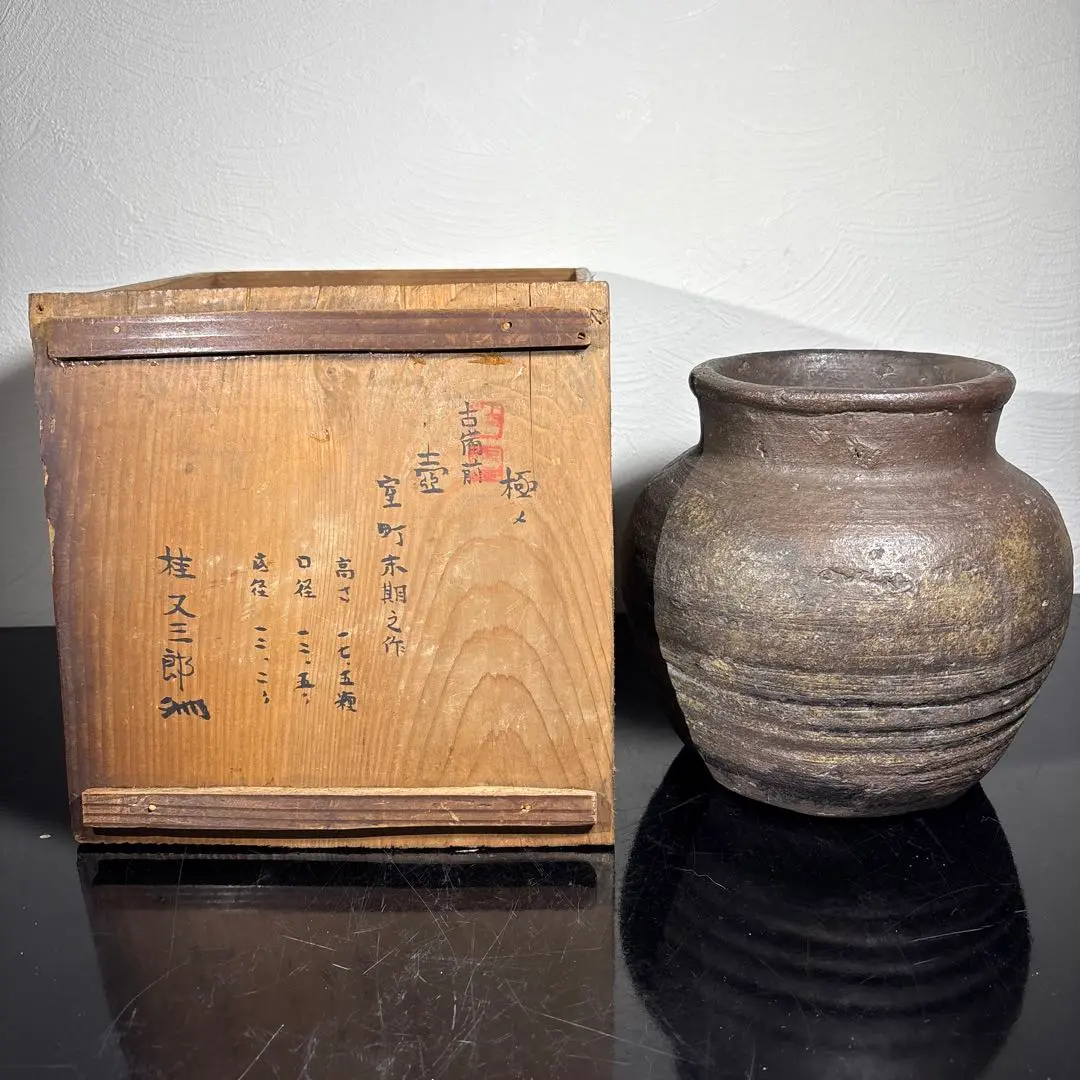 極メ
古備前
壺
室町末期之作
高さ 一七.五糎
口径 一三.五〃
底径 一二.二〃
桂又三郎